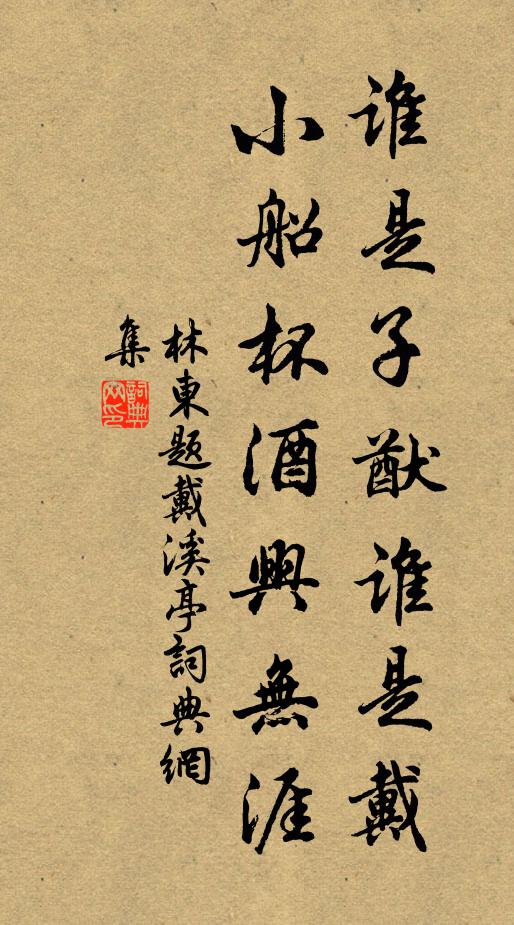 誰是子猷誰是戴
小船杯酒興無涯
林東題戴溪亭詞典網
集
詞典
网印